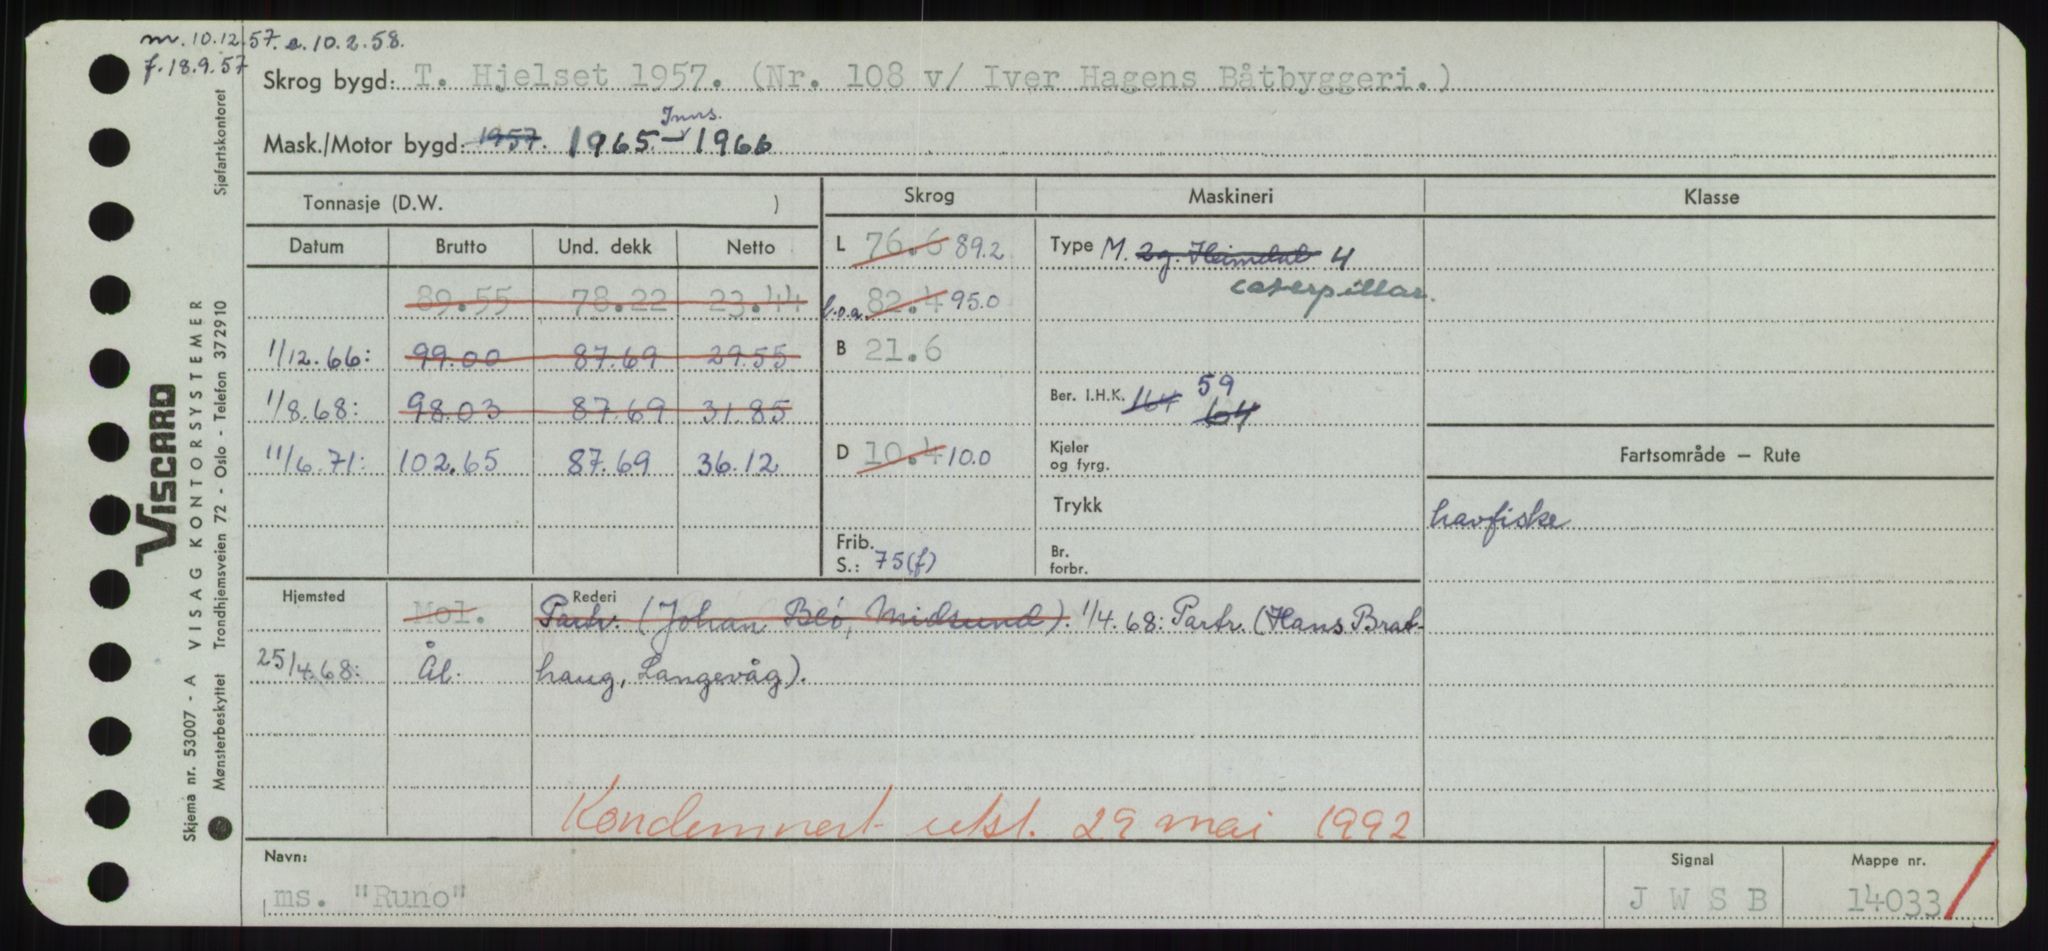 m. 10.12.57. e. 10.2.58.
f. 18.9.57
Skrog bygd: T. Hjelset 1957. (Nr. 108 v/ Iver Hagens Båtbyggeri.)
Inns.
Mask./Motor bygd: 1957. 1965 - 1966
Tonnasje (D.W. )
Skrog
Maskineri
Klasse
Datum Brutto Und. dekk Netto
L 76.6 89.2
Type M. 2g. Heimdal 4
caterpillar.
89.55 78.22 23.44
l.o.a. 82.4 95.0
1/12.66: 99.00 87.69 29.55
B 21.6
59
Ber. I.H.K. 164 64
1/8.68: 98.03 87.69 31.85
11/6.71: 102.65 87.69 36.12
D 10.4 10.0
Kjeler
og fyrg.
Fartsområde – Rute
Trykk
havfiske
Frib.
S.: 75(f)
Br.
forbr.
Hjemsted
Rederi
Mol. Partr. (Johan Blö, Midsund). 1/4.68: Partr. (Hans Brat-
25/4.68: Ål. haug, Langevåg).
Kondemnert utst. 29 mai 1992
Navn:
ms. "Runo"
Signal
J W S B
Mappe nr.
14033
VISCARD
Skjema nr. 53007 - A VISAG KONTORSYSTEMER
Mønsterbeskyttet Trondhjemsveien 72 - Oslo - Telefon 372910 Sjøfartskontoret